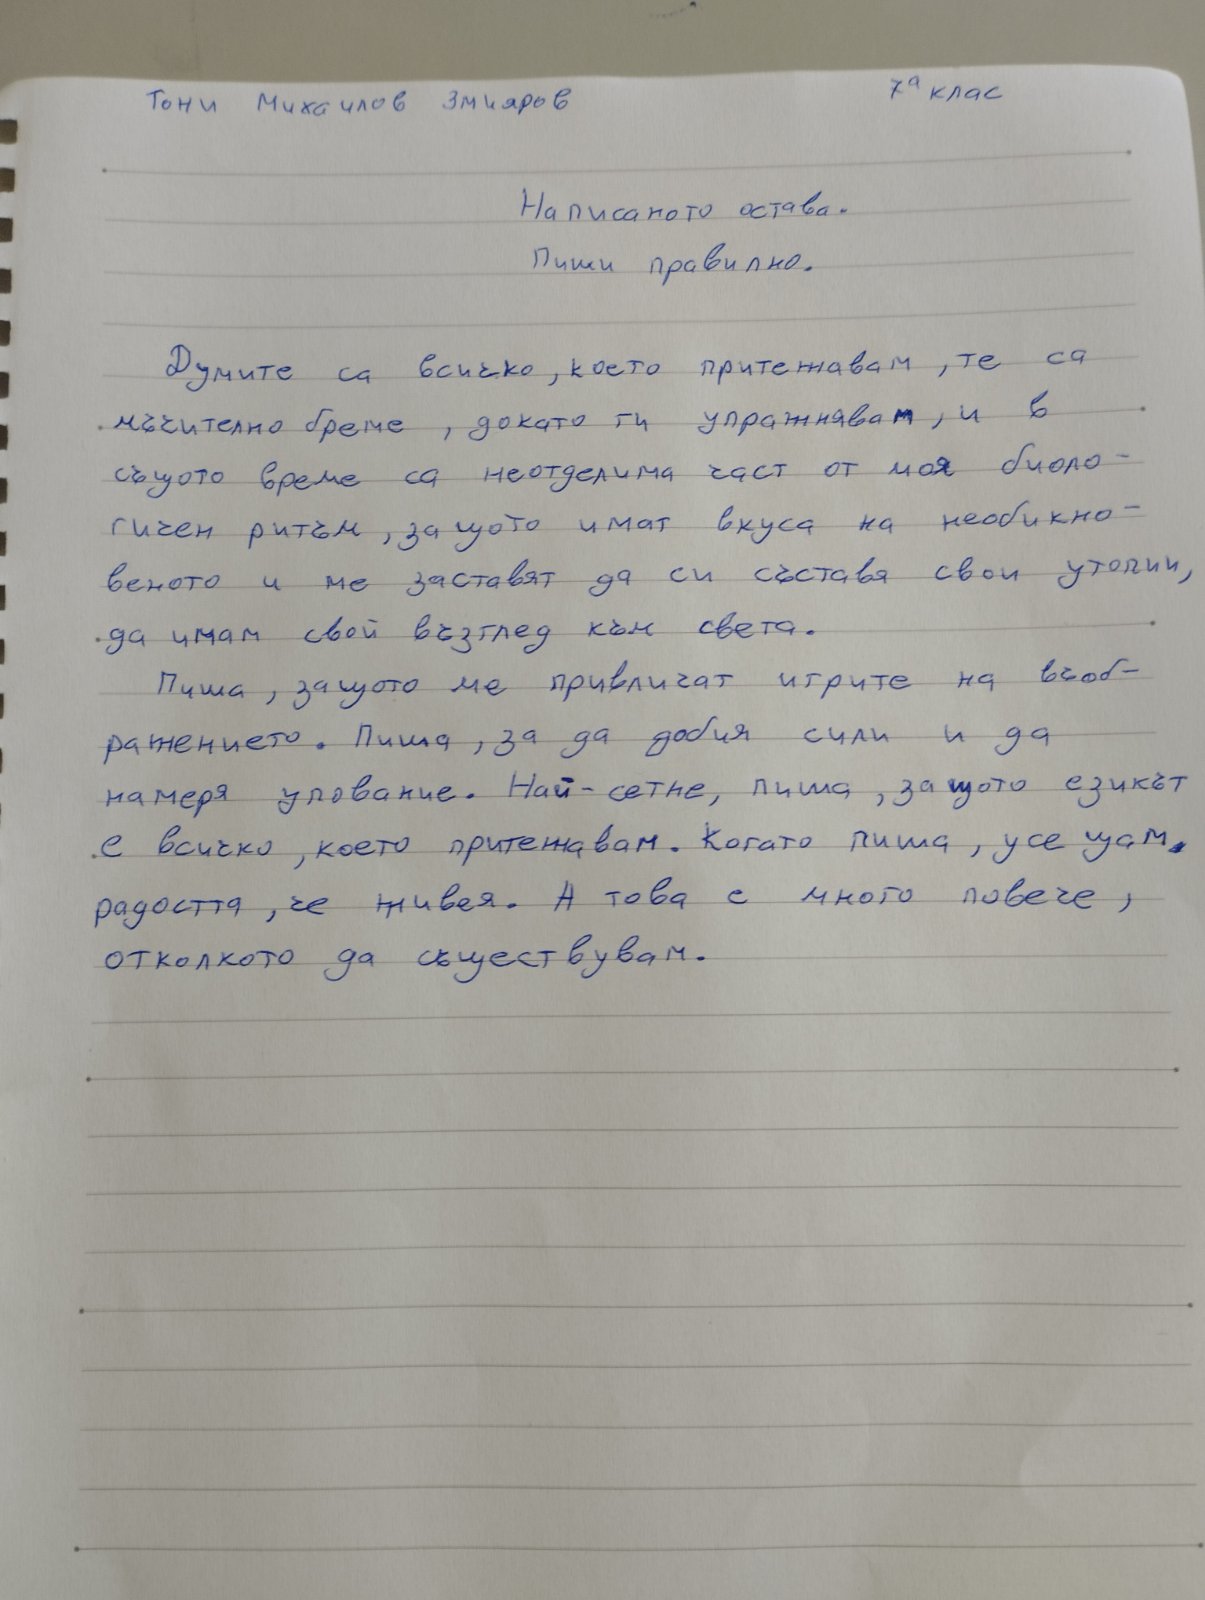 Тони Михаилов Змияров 7а клас
Написаното остава.
Пиши правилно.
Думите са всичко, което притежавам, те са
мъчително бреме, докато ги упражнявам, и в
същото време са неотделима част от моя биоло-
гичен ритъм, защото имат вкуса на необикно-
веното и ме заставят да си съставя свои утопии,
да имам свой възглед към света.
Пиша, защото ме привличат игрите на въоб-
ражението. Пиша, за да добия сили и да
намеря упование. Най-сетне, пиша, защото езикът
е всичко, което притежавам. Когато пиша, усещам
радостта, че живея. А това е много повече,
отколкото да съществувам.